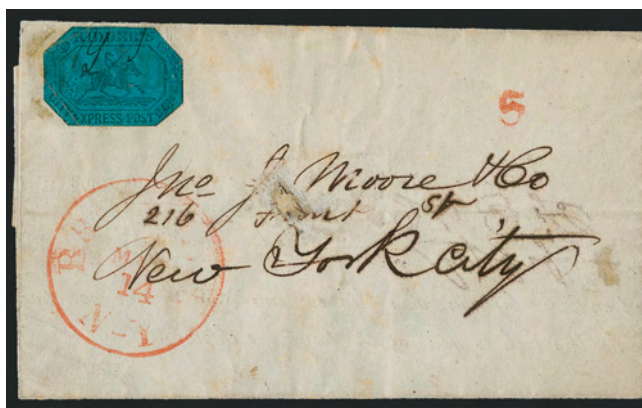 EXPRESS POST
5
Jno J Moore & Co
216 Front St
New York city
14
N-Y